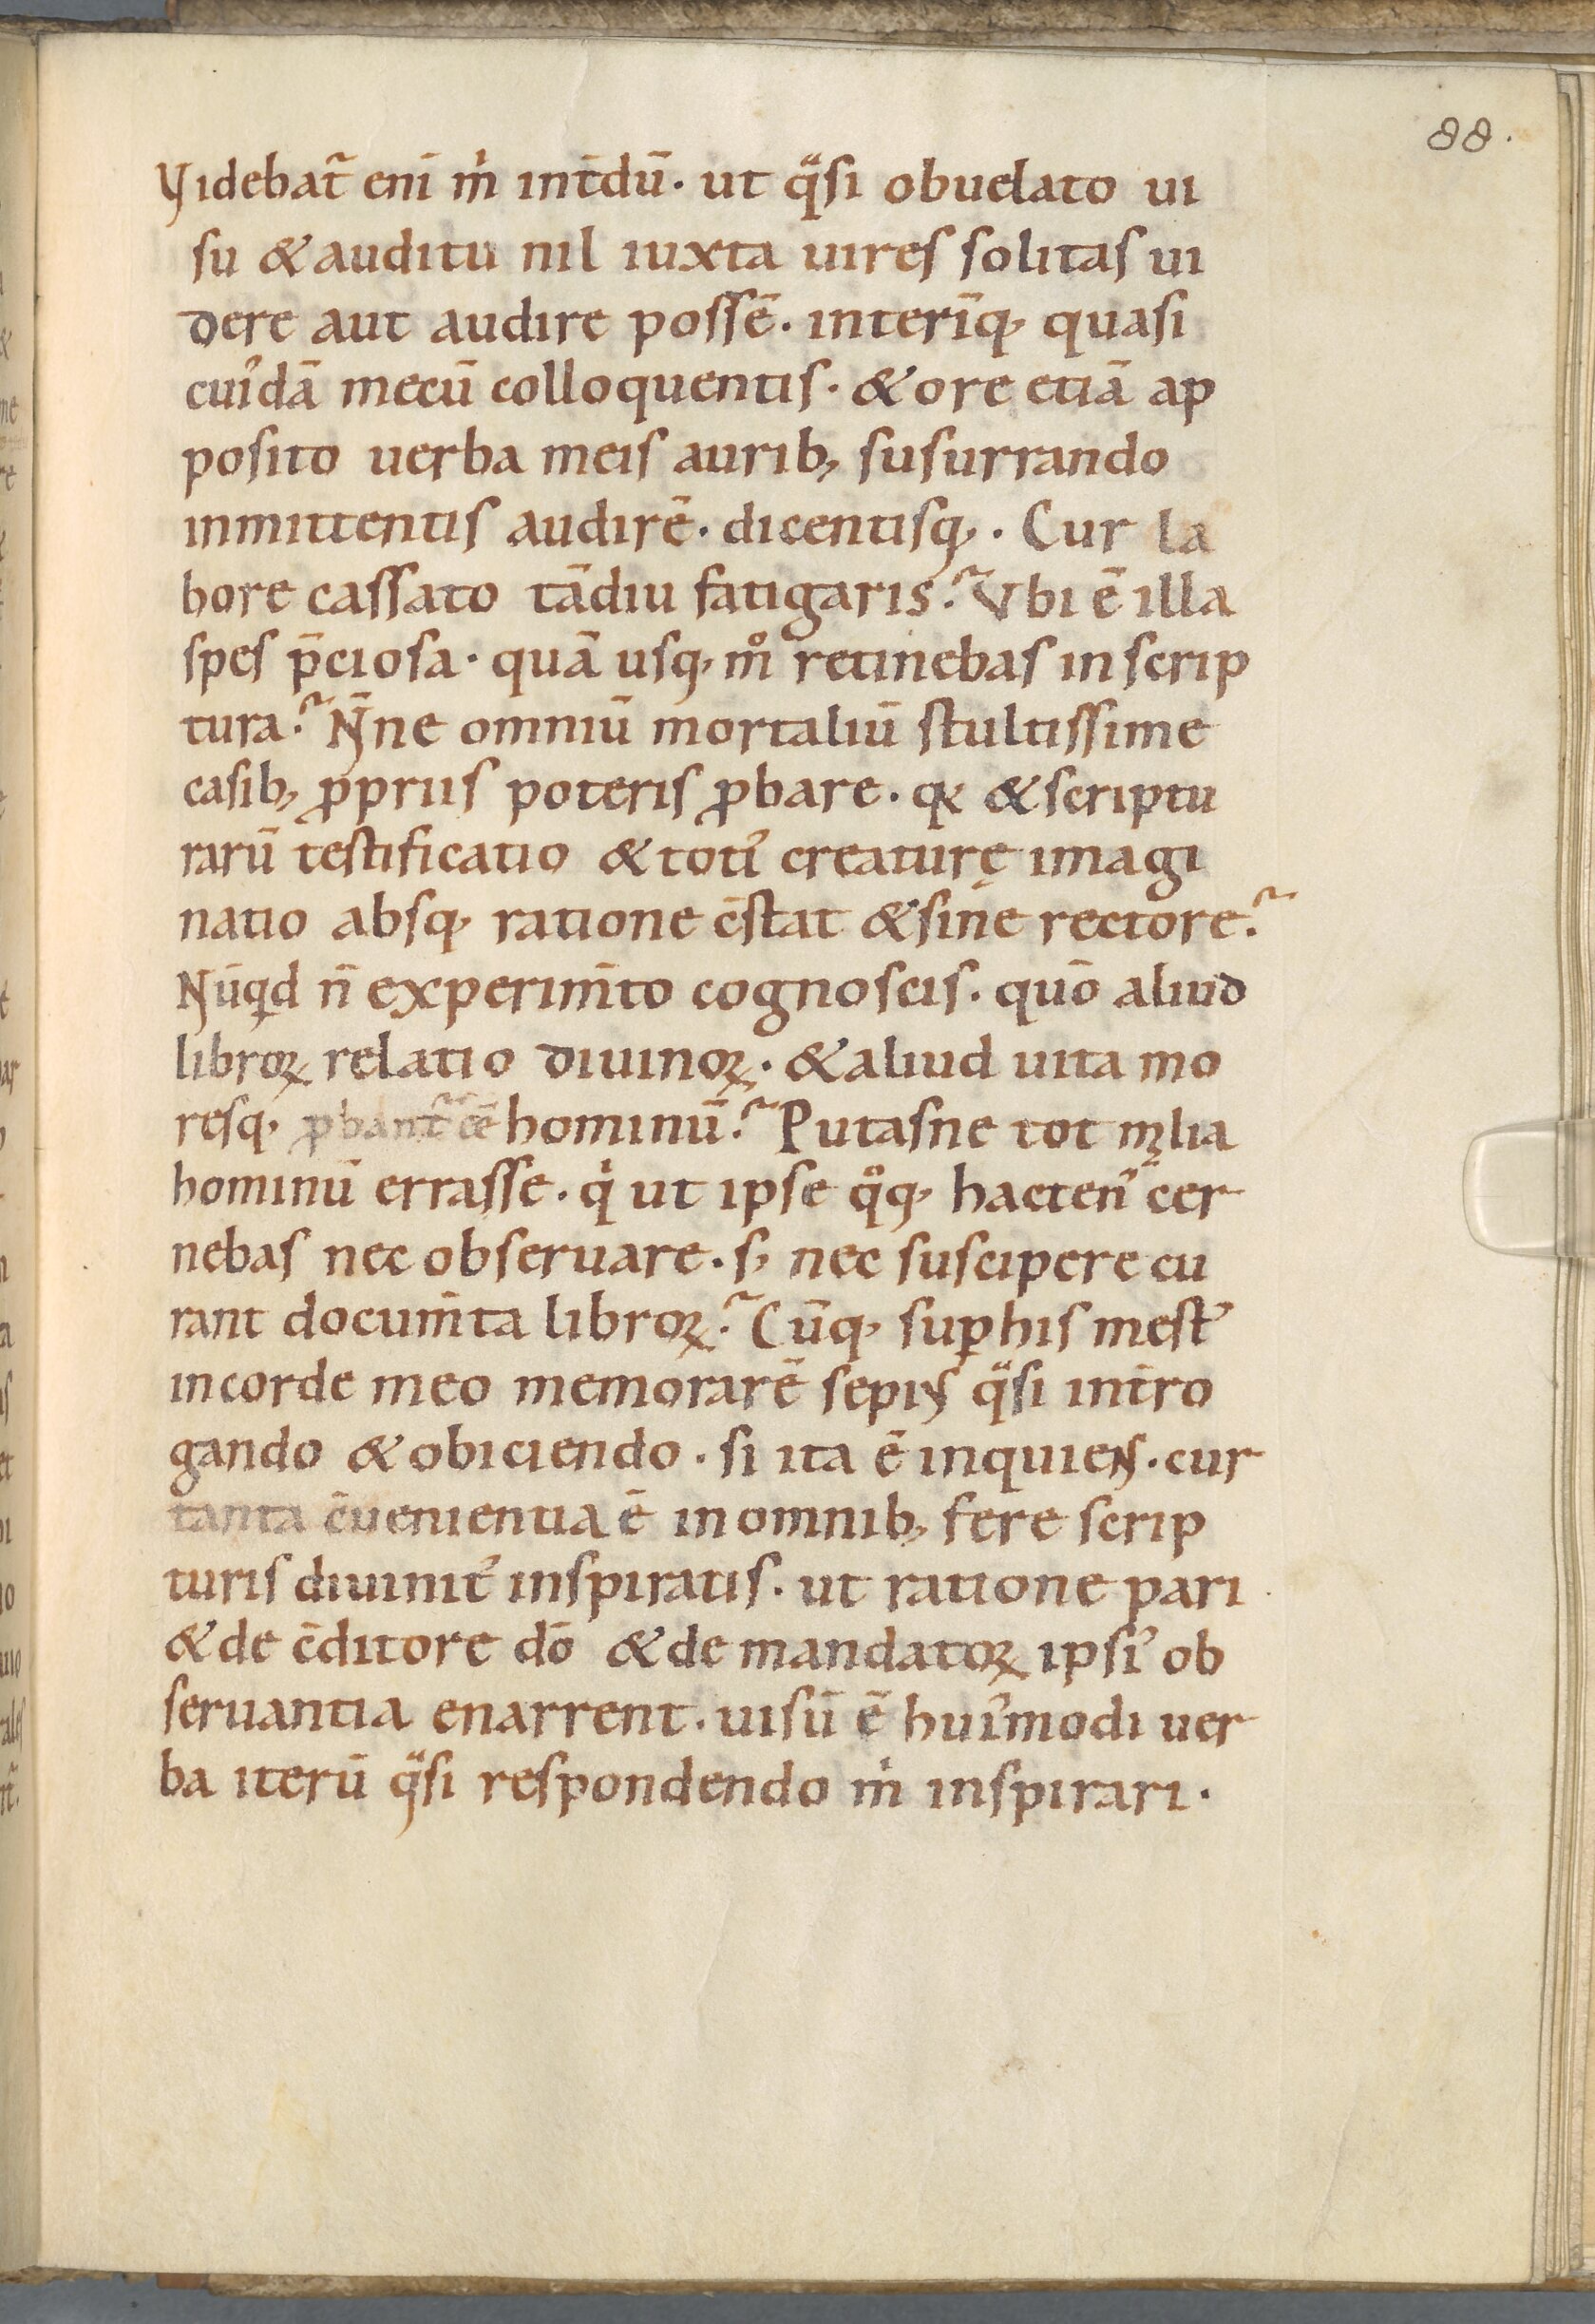 88.
Videbat᷑ eni̅ m̍ int̅du̅· ut qᷓsi obuelato ui
su &auditu nil iuxta uires solitas ui
dere aut audire posse̅· interi̅q; quasi
cui᾽da̅ mecu̅ colloquentis· &ore etia̅ ap
posito uerba meis aurib; susurrando
inmittentis audire̅· dicentisq;· Cur la
bore cassato ta̅diu fatigaris? Vbi e̅ illa
spes p̅ciosa· qua̅ usq; mͦ retinebas in scrip
tura? N̅ne omniu̅ mortaliu̅ stultissime
casib; ꝓpriis poteris ꝓbare· qꝛ &scriptu
raru̅ testificatio &toti᾽ creaturę imagi
natio absq; ratione c̅stat &sine rectore?
Nu̅qd n̅ experim̅to cognoscis· quo̅ aliud
libroꝝ relatio diuinoꝝ· &aliud uita mo
resq; ꝓbant᷑ ee̅ hominu̅? Putasne tot milia
hominu̅ errasse· q̍ ut ipse qͦq; hacten᾽ cer
nebas nec obseruare· s; nec suscipere cu
rant docum̅ta libroꝝ? Cu̅q; suꝑhis mest᾽
incorde meo memorare̅ sepius qᷓsi int̅ro
gando &obiciendo· si ita e̅ inquiens· cur
tanta c̅uenientia e̅ inomnib; fere scrip
turis diuinit᾽ inspiratis· ut ratione pari
&de c̅ditore do̅ &de mandatoꝝ ipsi᾽ ob
seruantia enarrent· uisu̅ e̅ hui᾽modi uer
ba iteru̅ qᷓsi respondendo m̍ inspirari·